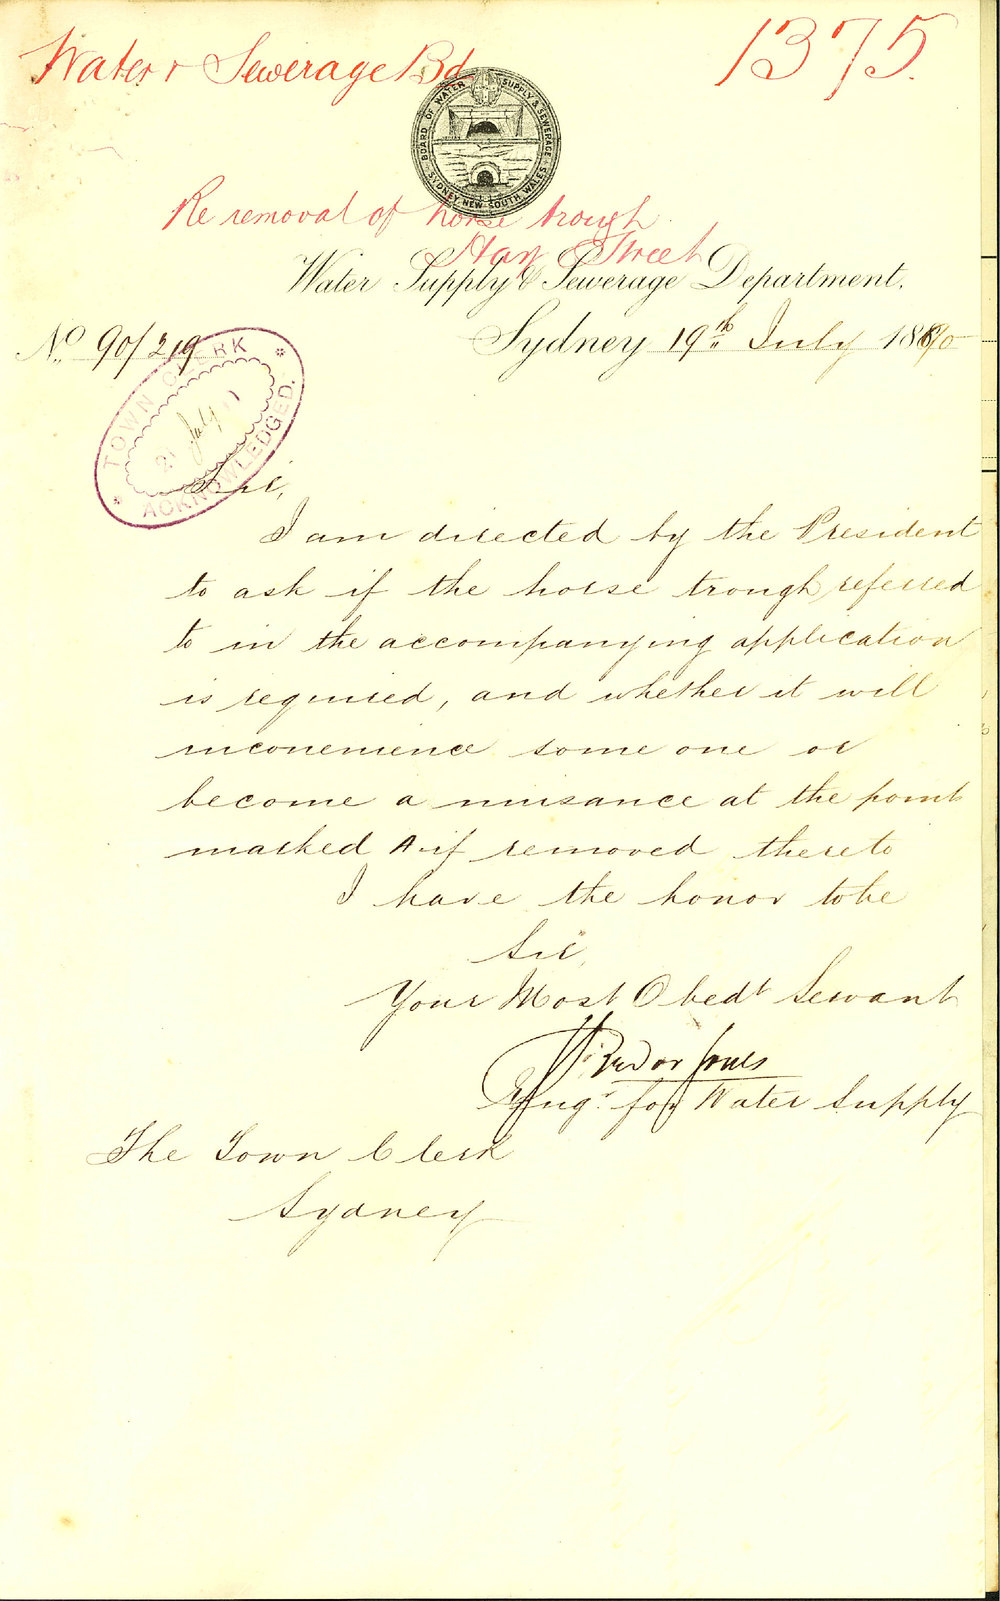 Water & Sewerage Bd
1375.
BOARD OF WATER SUPPLY & SEWERAGE
SYDNEY NEW SOUTH WALES
Re removal of horse trough
Hay Street
Water Supply & Sewerage Department.
No 90/219
Sydney 19th July 1890
TOWN CLERK
21 July
ACKNOWLEDGED.
Sir,
I am directed by the President
to ask if the horse trough referred
to in the accompanying application
is required, and whether it will
inconvenience some one or
become a nuisance at the point
marked A if removed thereto
I have the honor to be
Sir,
Your Most Obedt Servant
Tudor Jones
Engr. for Water Supply
The Town Clerk
Sydney